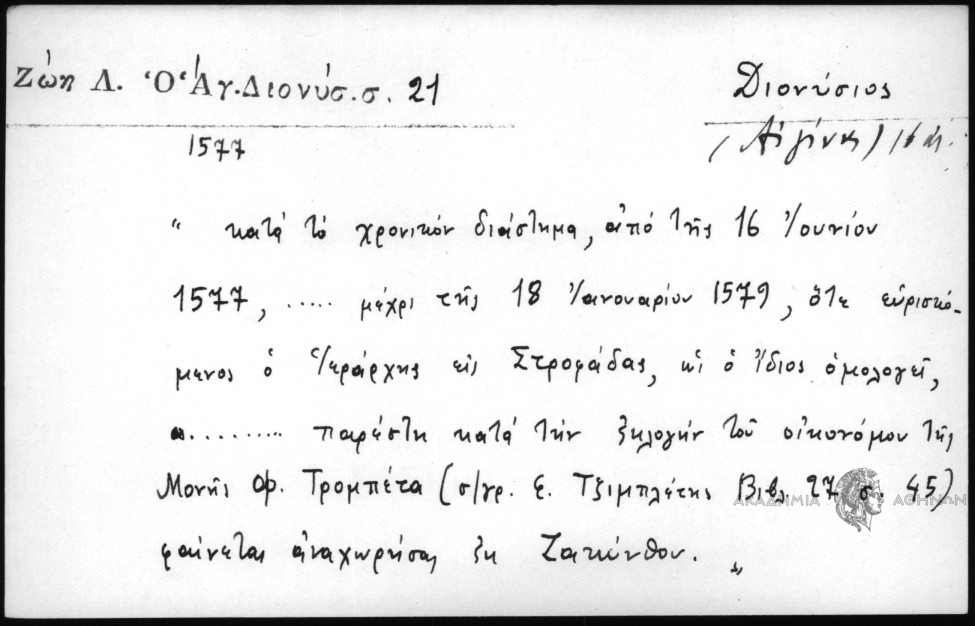 Ζώη Λ. Ὁ Ἅγ. Διονύσ. σ. 21
Διονύσιος
1577
(Αἰγίνης)
" κατά τό χρονικόν διάστημα, ἀπό τῆς 16 Ἰουνίου
1577, ..... μέχρι τῆς 18 Ἰανουαρίου 1579, ὅτε εὑρισκό-
μενος ὁ Ἱεράρχης εἰς Στροφάδας, ὡς ὁ ἴδιος ὁμολογεῖ,
......... παρέστη κατά τήν ἐκλογήν τοῦ οἰκονόμου τῆς
Μονῆς Φρ. Τρομπέτα (σ/γρ. Ε. Τζιμπλέτης Βιβ. 27 σ. 45)
φαίνεται ἀναχωρήσας ἐκ Ζακύνθου. "
ΑΚΑΔΗΜΙΑ ΑΘΗΝΩΝ